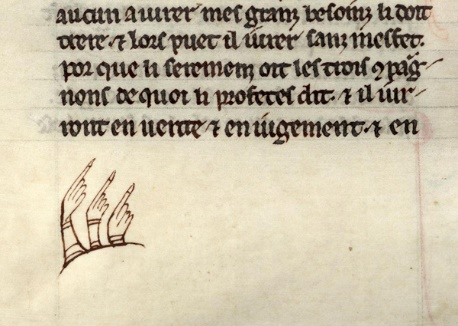 aucun a iurer mes granz besoinz li doit
trere. ⁊ lors puet il iurer sanz mesfet.
por que li seremenz oit les trois ꝯpaig-
nons de quoi li profetes dit. ⁊ il iur-
ront en uerite ⁊ en iugement. ⁊ en